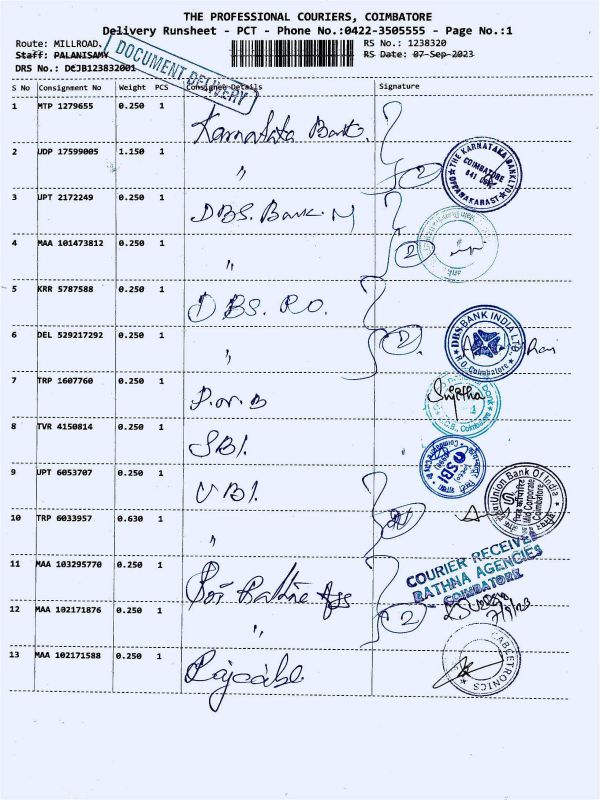 THE PROFESSIONAL COURIERS, COIMBATORE
Delivery Runsheet - PCT - Phone No.:0422-3505555 - Page No.:1
Route: MILLROAD,
RS No.: 1238320
Staff: PALANISAMY
RS Date: 07-Sep-2023
DRS No.: DCJB123832001
DOCUMENT DELIVERY
S No Consignment No Weight PCS Consignee Details Signature
1 MTP 1279655 0.250 1 Karnataka Bank.
2 UDP 17599005 1.150 1 "
2
THE KARNATAKA BANK LTD
COIMBATORE
641 001
OPPANAKARA ST
3 UPT 2172249 0.250 1 DBS. Bank. M
4 MAA 101473812 0.250 1 "
2
5 KRR 5787588 0.250 1 DBS. R.O.
6 DEL 529217292 0.250 1 "
2
DBS BANK INDIA LTD
R.O. Coimbatore
7 TRP 1607760 0.250 1
Sujatha
Coimbatore
8 TVR 4150814 0.250 1 SBI.
SBI
9 UPT 6053707 0.250 1 UBI.
Union Bank Of India
Mid Corporate
Coimbatore
10 TRP 6033957 0.630 1 "
2
11 MAA 103295770 0.250 1
COURIER RECEIVED
RATHNA AGENCIES
COIMBATORE
12 MAA 102171876 0.250 1 "
2
7/9/23
13 MAA 102171588 0.250 1